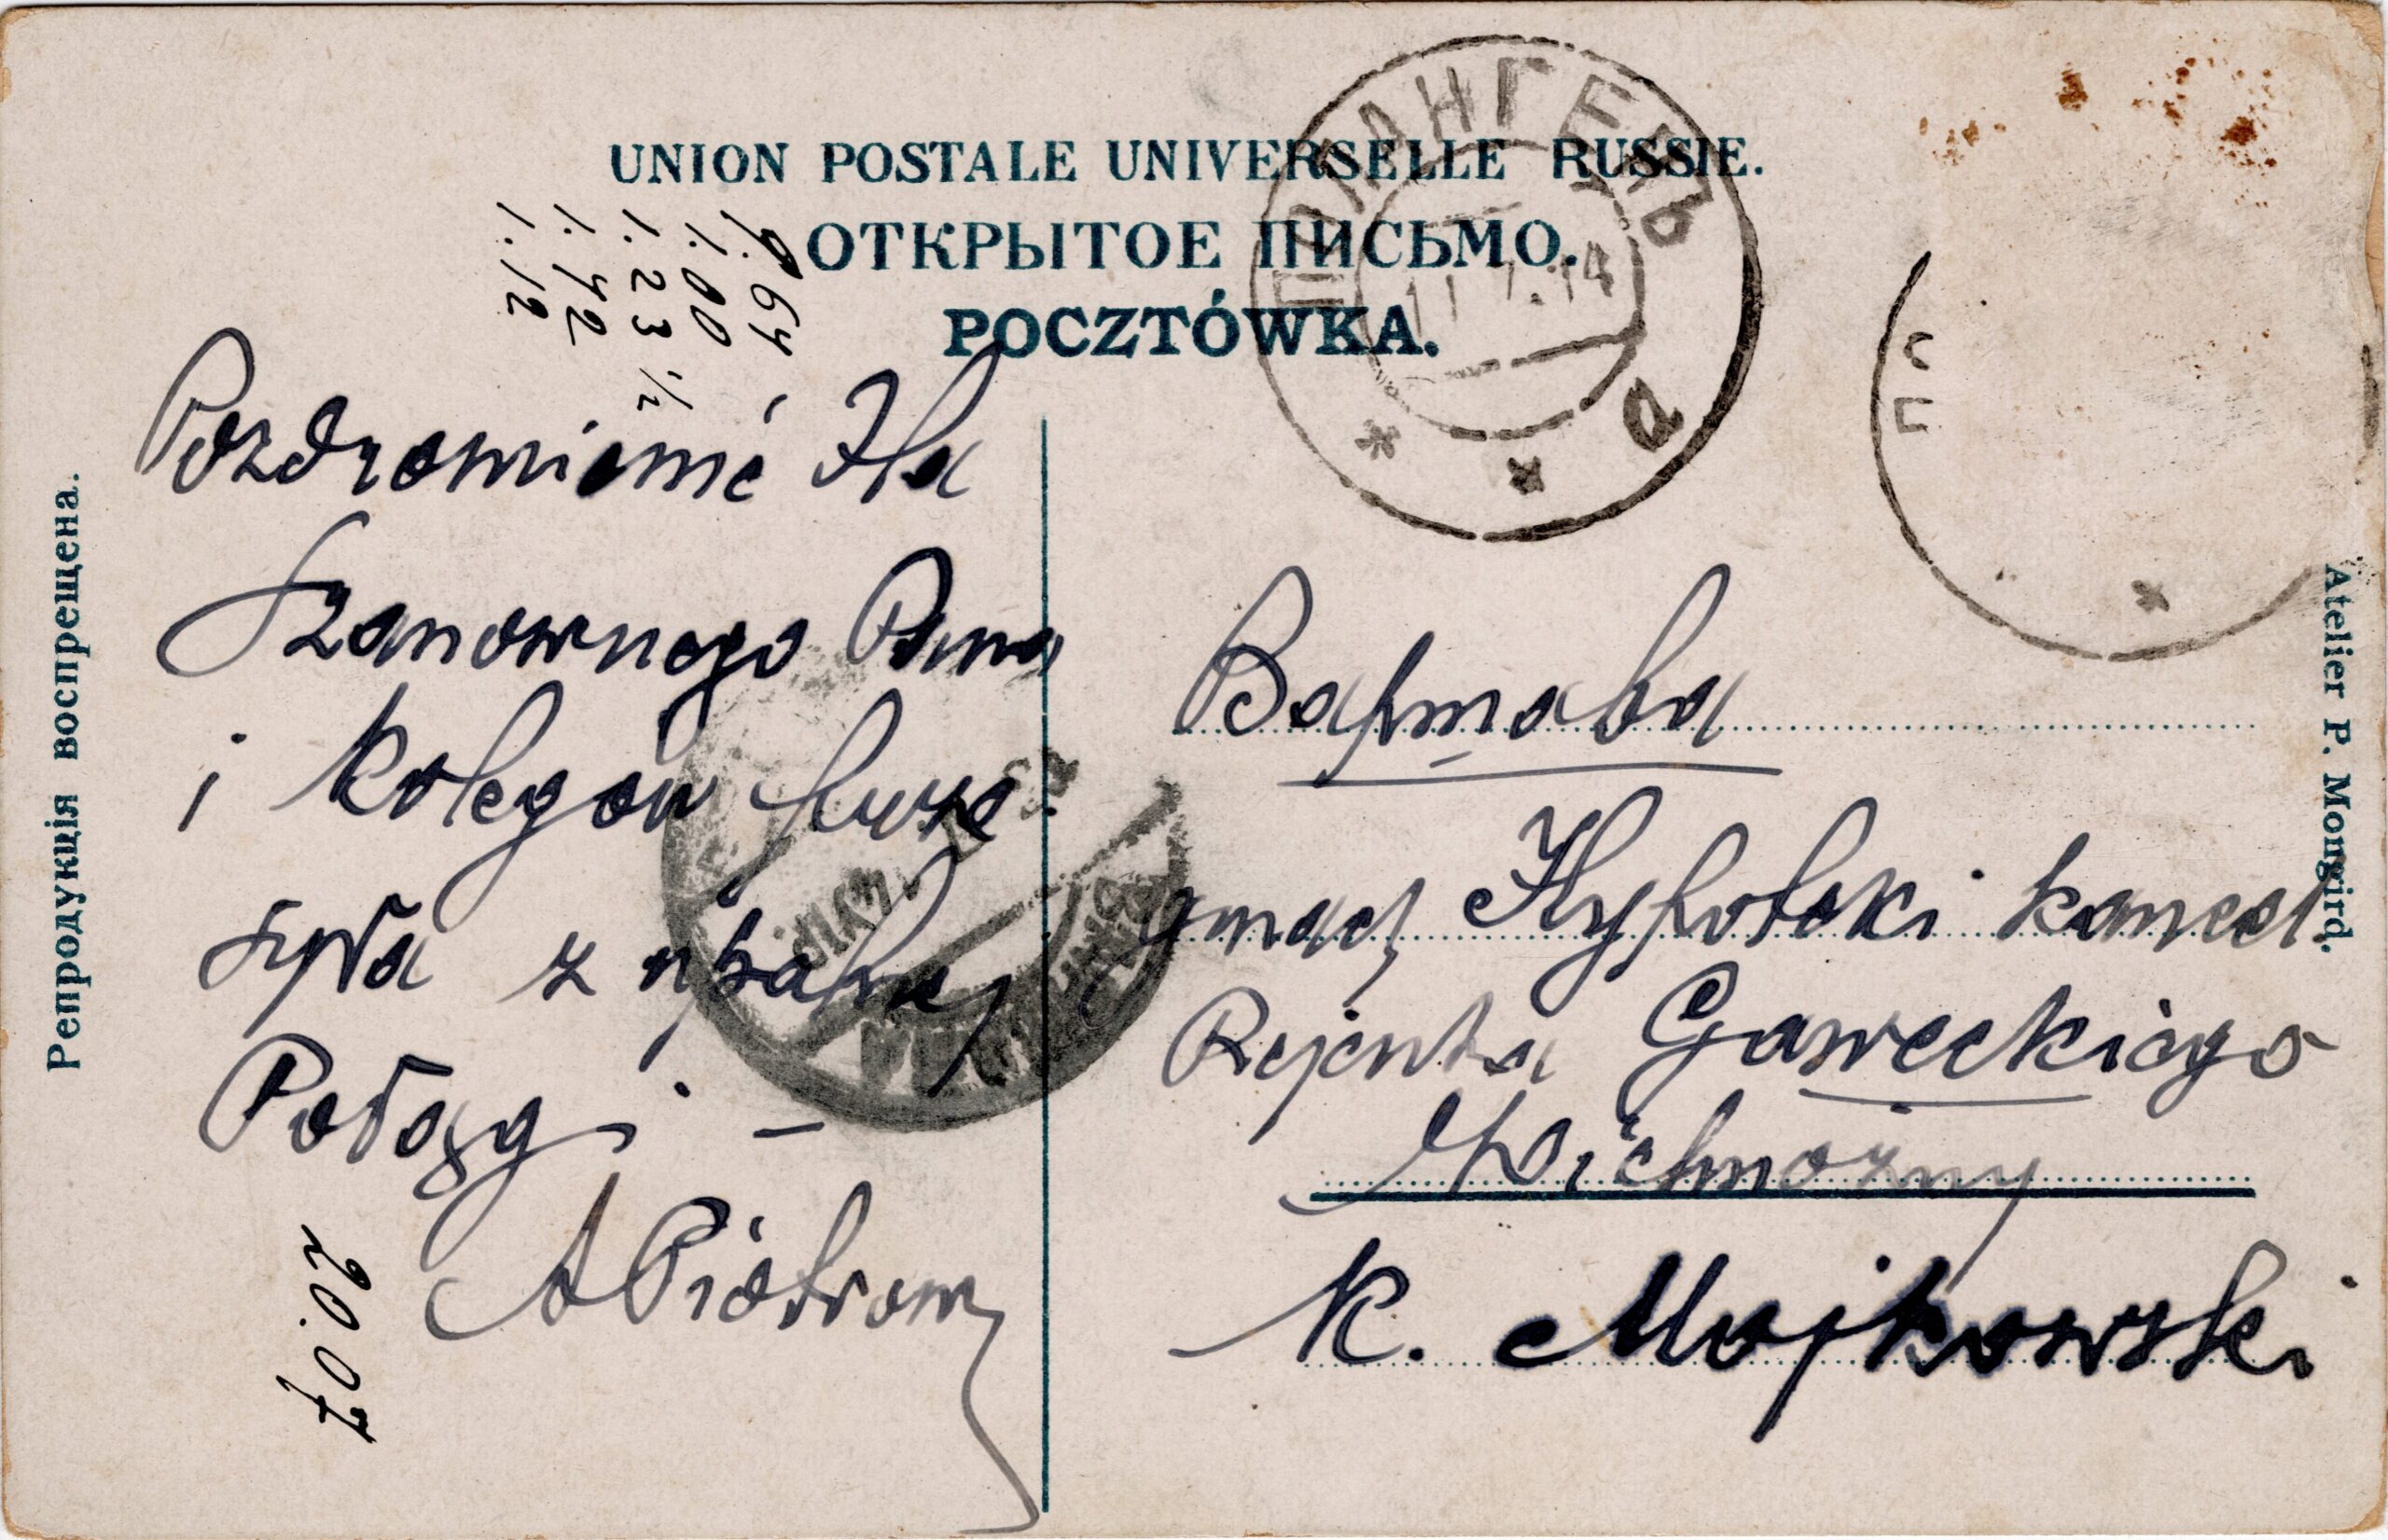 UNION POSTALE UNIVERSELLE RUSSIE.
ОТКРЫТОЕ ПИСЬМО.
POCZTÓWKA.
ПОЛАНГЕНЪ
Репродукція воспрещена.
Atelier P. Mongird.
1.00
1.23 1/2
1.42
1.12
Pozdrowienie dla
Szanownego Pana
i Kolegów
syła z
Połągi –
A Piotrow
20.07
Варшава
gmach Hypoteki kancel.
Rejenta Gaweckiego
Wielmożny
K. Mojkowski